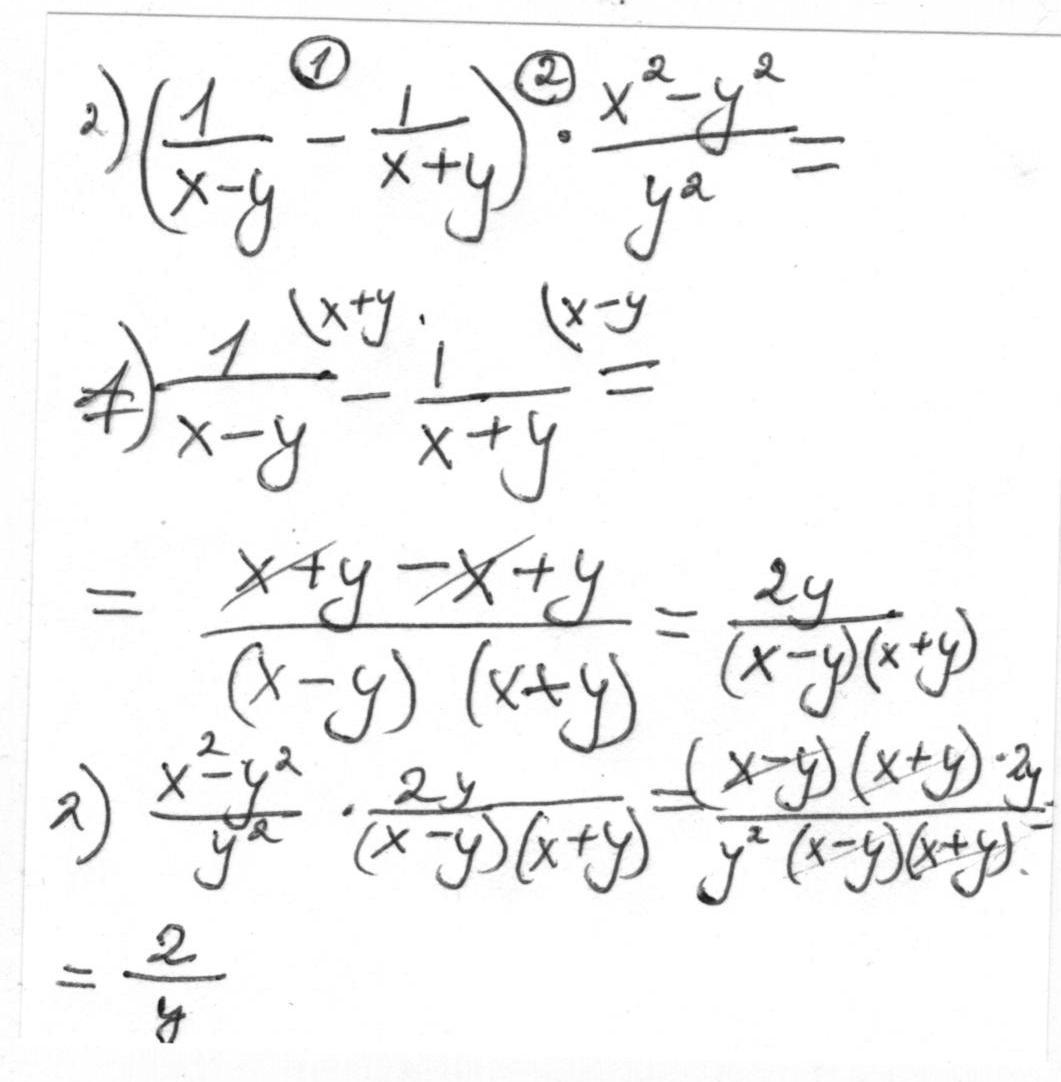 ① ②
2) (1/(x-y) - 1/(x+y)) · (x²-y²)/y² =
1) 1/(x-y) (x+y - 1/(x+y) (x-y =
= (x+y-x+y)/((x-y)(x+y)) = 2y/((x-y)(x+y))
2) (x²-y²)/y² · 2y/((x-y)(x+y)) = ((x-y)(x+y)·2y)/(y²(x-y)(x+y)) =
= 2/y